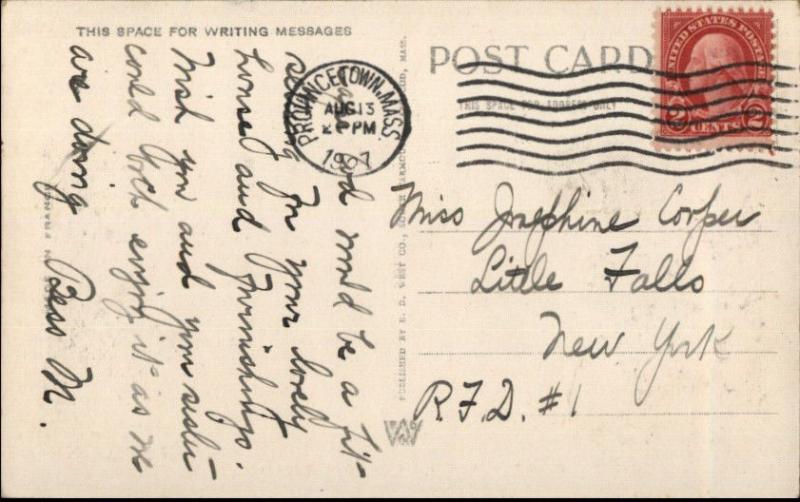 THIS SPACE FOR WRITING MESSAGES
would be a fit-
setting for your lovely
house and furnishings.
Wish you and your sister
could both enjoy it as we
are doing. Bess M.
PROVINCETOWN, MASS.
AUG 13
PM
POST CARD
THIS SPACE FOR ADDRESS ONLY
UNITED STATES POSTAGE
2 CENTS 2
Miss Josephine Cooper
Little Falls
New York
R.F.D. #1
PUBLISHED BY E. D. WEST CO., SOUTH YARMOUTH, MASS.
IN FRANCE